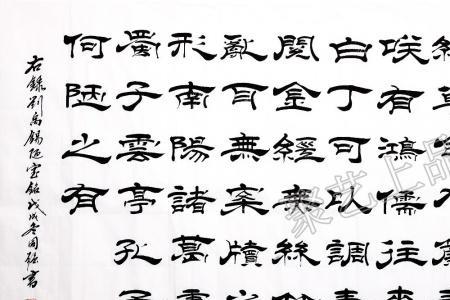 咲有鴻儒往来
白丁可以調素
閱金經无絲
亂耳無案牘之
形南陽諸葛
蜀子雲亭孔子
何陋之有
右錄劉禹錫陋室銘戊戌冬周強書
聚艺上品